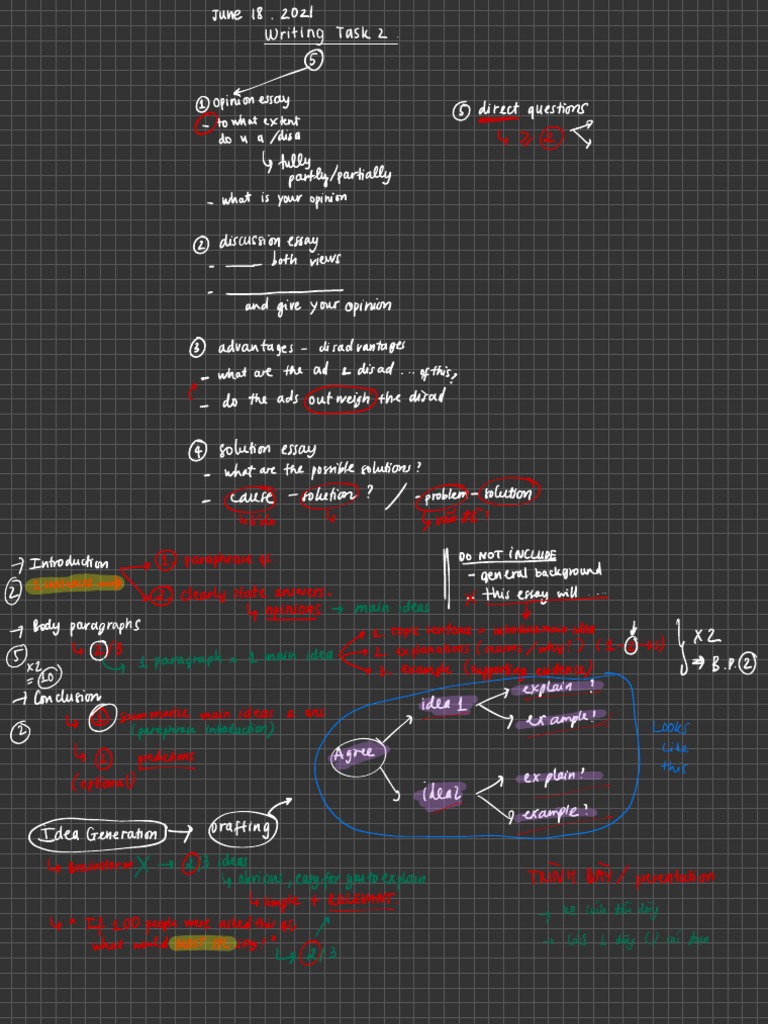 June 18. 2021
Writing Task 2.
5
① opinion essay
- to what extent
do u a/disa
↳ fully
partly/partially
- what is your opinion
② discussion essay
- ____ both views
- ____
and give your opinion
③ advantages - disadvantages
- what are the ad & disad ... of this?
- do the ads outweigh the disad
④ solution essay
- what are the possible solutions?
- cause - solution? / - problem - solution
⑤ direct questions
↳ ≥ 2
→ Introduction
2
① paraphrase qs
② clearly state answers.
↳ opinions → main ideas
DO NOT INCLUDE
- general background
× this essay will ....
→ Body paragraphs
↳ 2/3
5
x2
= 10
→ 1 paragraph = 1 main idea
1. topic sentence =
2. explanations
3. example (supporting evidence)
x2
⇒ B.P. 2
→ Conclusion
2
↳ summarise main ideas & ans
(paraphrase introduction)
↳ predictions
(optional)
Agree
idea 1
explain?
example?
idea2
explain?
example?
Looks
like
this
Idea Generation → Drafting
↳ Brainstorm X → 2/3 ideas
↳ obvious, easy for you to explain
↳ simple + RELEVANT
↳ * If 100 people were asked this qs,
what would most of say?"
↳ 2/3
TRÌNH BÀY / presentation